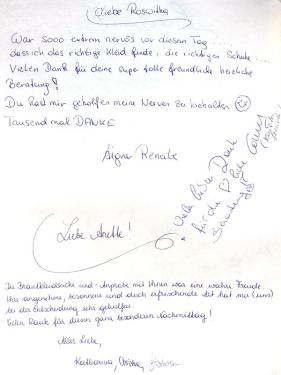 Liebe Roswitha
War sooo extrem nervös vor diesem Tag ....
dass ich das richtige Kleid finde, die richtigen Schuhe ...
Vielen Dank für deine super tolle freundliche herzliche
Beratung!
Du hast mir geholfen meine Nerven zu behalten
Tausend mal DANKE
Renate
Vielen lieben Dank
für die liebe
Beratung
Liebe Anette!
Die Brautkleidsuche und -Anprobe mit Ihnen war eine wahre Freude.
Ihre angenehme, besonnene und doch erfrischende Art hat mir (uns)
bei der Entscheidung sehr geholfen.
Vielen Dank für diesen ganz besonderen Nachmittag!
Alles Liebe,
Katharina,